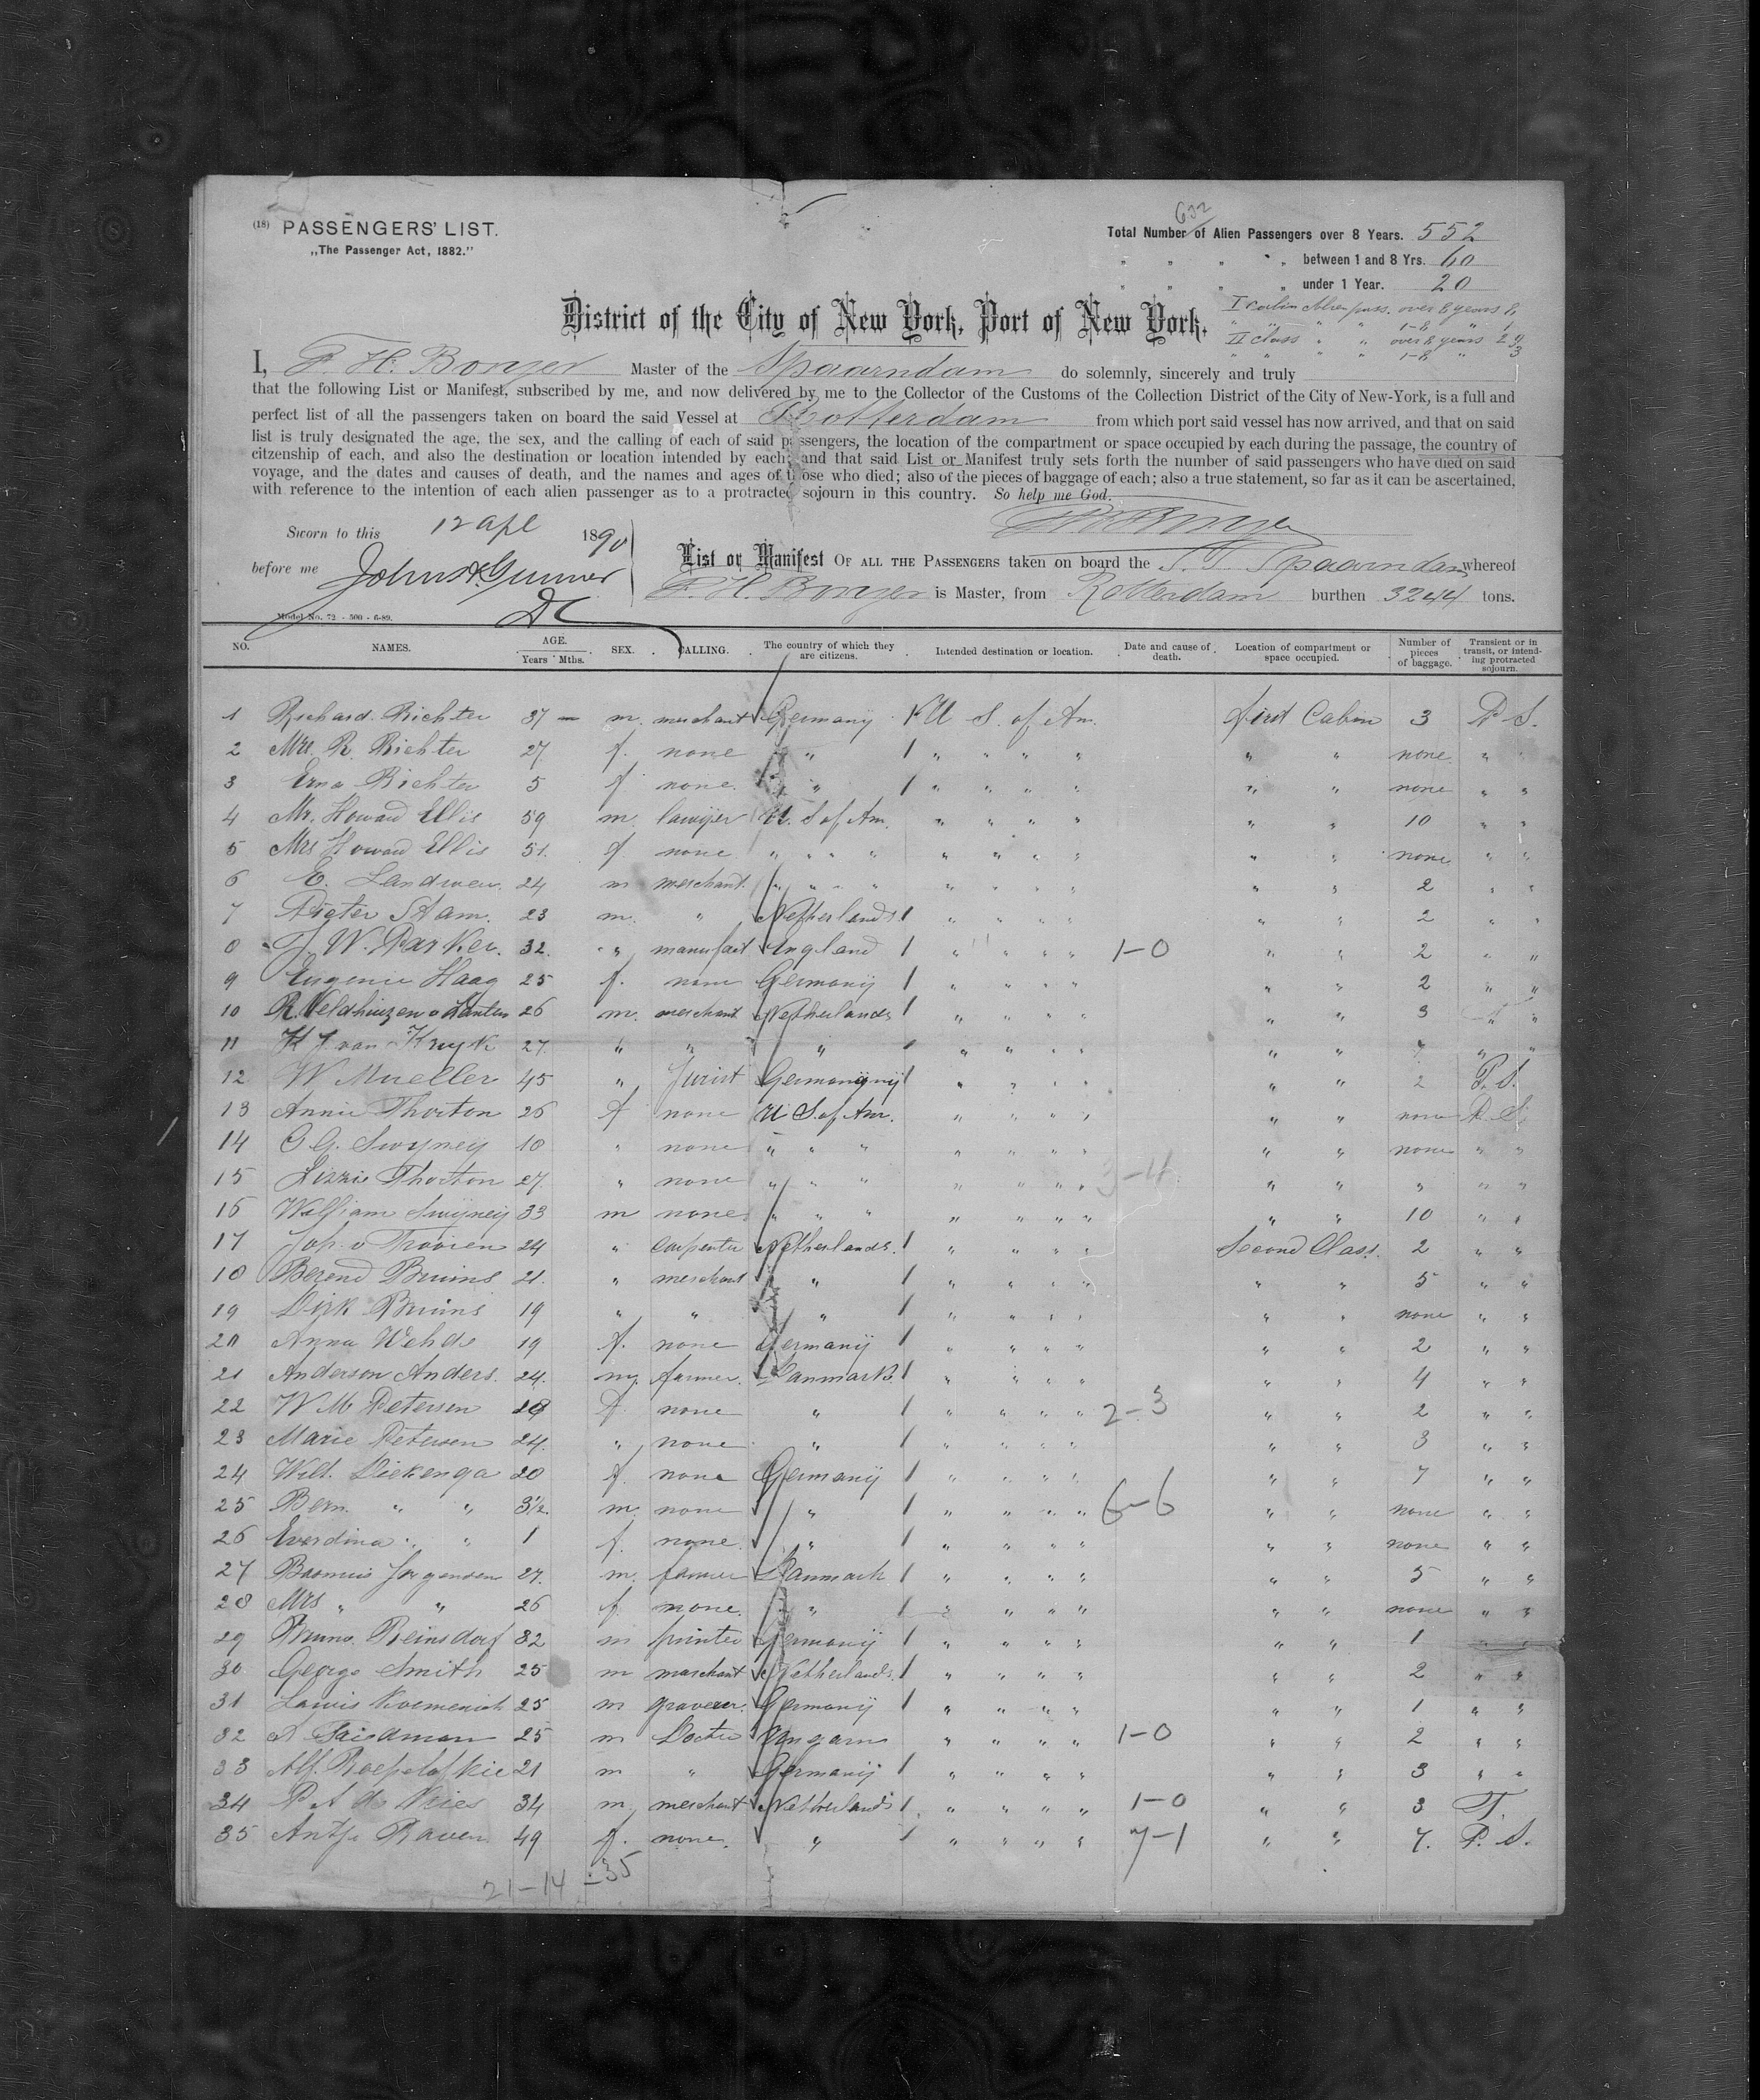 (18) PASSENGERS' LIST.
„The Passenger Act, 1882."
632
Total Number of Alien Passengers over 8 Years. 552
" " " " between 1 and 8 Yrs. 60
" " " " under 1 Year. 20
I Cabin Alien pass. over 8 years 8,
" " " " 1-8 " 1
II class " " over 8 years 29
" " " " 1-8 " 3
District of the City of New York, Port of New York.
I, F. H. Bonjer Master of the Spaarndam do solemnly, sincerely and truly
that the following List or Manifest, subscribed by me, and now delivered by me to the Collector of the Customs of the Collection District of the City of New-York, is a full and
perfect list of all the passengers taken on board the said Vessel at Rotterdam from which port said vessel has now arrived, and that on said
list is truly designated the age, the sex, and the calling of each of said passengers, the location of the compartment or space occupied by each during the passage, the country of
citzenship of each, and also the destination or location intended by each; and that said List or Manifest truly sets forth the number of said passengers who have died on said
voyage, and the dates and causes of death, and the names and ages of those who died; also of the pieces of baggage of each; also a true statement, so far as it can be ascertained,
with reference to the intention of each alien passenger as to a protracted sojourn in this country. So help me God.
F. H. Bonjer
Sworn to this 12 Apl 1890
before me John A. Gunner
DC
List or Manifest OF ALL THE PASSENGERS taken on board the S. S. Spaarndam whereof
F. H. Bonjer is Master, from Rotterdam burthen 3244 tons.
Model No. 72 - 500 - 6-89.
NO. NAMES. AGE. Years Mths. SEX. CALLING. The country of which they are citizens. Intended destination or location. Date and cause of death. Location of compartment or space occupied. Number of pieces of baggage. Transient or in transit, or intending protracted sojourn.
1 Richard Richter 37 — m. merchant Germany U S. of Am. first Cabin 3 P S.
2 Mrs. R. Richter 27 f. none " " " " " " " none " "
3 Erna Richter 5 f none " " " " " " " none " "
4 Mr. Howard Ellis 59 m. lawyer U. S of Am. " " " " " " 10 " "
5 Mrs Howard Ellis 51. f none " " " " " " " " " " none " "
6 E. Landwer 24 m merchant " " " " " " " " " " 2 " "
7 Pieter Stam. 23 m. " Netherlands " " " " " " 2 " "
8 J. W. Parker. 32. " manufact England " " " " 1-0 " " 2 " "
9 Eugenie Haag 25 f. none Germany " " " " " " 2 " "
10 R. Veldhuizen v Santen 26 m. merchant Netherlands " " " " " " 3 " "
11 H J. van Kruyk 27. " " " " " " " " " " "
12 W Mueller 45 " Jurist Germany " " " " " " 2 P. S.
13 Annie Thorton 26 f none U S. of Am. " " " " " " none P. S.
14 O G. Swyney 10 " none " " " " " " " " " none " "
15 Lizzie Thorton 27. " none " " " " " " " 3-4 " " " " "
16 William Swijney 33 m none " " " " " " " " " 10 " "
17 Joh. v Trooien 24 " carpenter Netherlands. " " " " Second Class. 2 " "
18 Berend Bruins 21. " merchant " " " " " " " 5 " "
19 Dirk Bruins 19 " " " " " " " " " none " "
20 Anna Wehde 19 f. none Germany " " " " " " 2 " "
21 Anderson Anders. 24. m. farmer. Danmark. " " " " " " 4 " "
22 W M Petersen 28 f. none " " " " " 2-3 " " 2 " "
23 Marie Petersen 24. " none " " " " " " " 3 " "
24 Wilt. Diekenga 20 f. none Germany " " " " " " 7 " "
25 Bern. " " 3½. m. none " " " " " 6-6 " " none " "
26 Everdina " " 1 f. none. " " " " " " " none " "
27 Rasmus Jorgensen 27. m. farmer Danmark " " " " " " 5 " "
28 Mrs " " 26 f none. " " " " " " " none " "
29 Bruno Reinsdorf 32 m printer Germany " " " " " " 1 " "
30 George Smith 25 m marchant Netherlands " " " " " " 2 " "
31 Louis 25 m graverer. Germany " " " " " " 1 " "
32 A Faidman 25 m Doctor Ungarn " " " " 1-0 " " 2 " "
33 Alf. 21 m " Germany " " " " " " 3 " "
34 P A de Vries 34 m. merchant Netherlands " " " " 1-0 " " 3 T.
35 Antje Raven 49 f. none. " " " " " 7-1 " " 7. P. S.
21-14 = 35